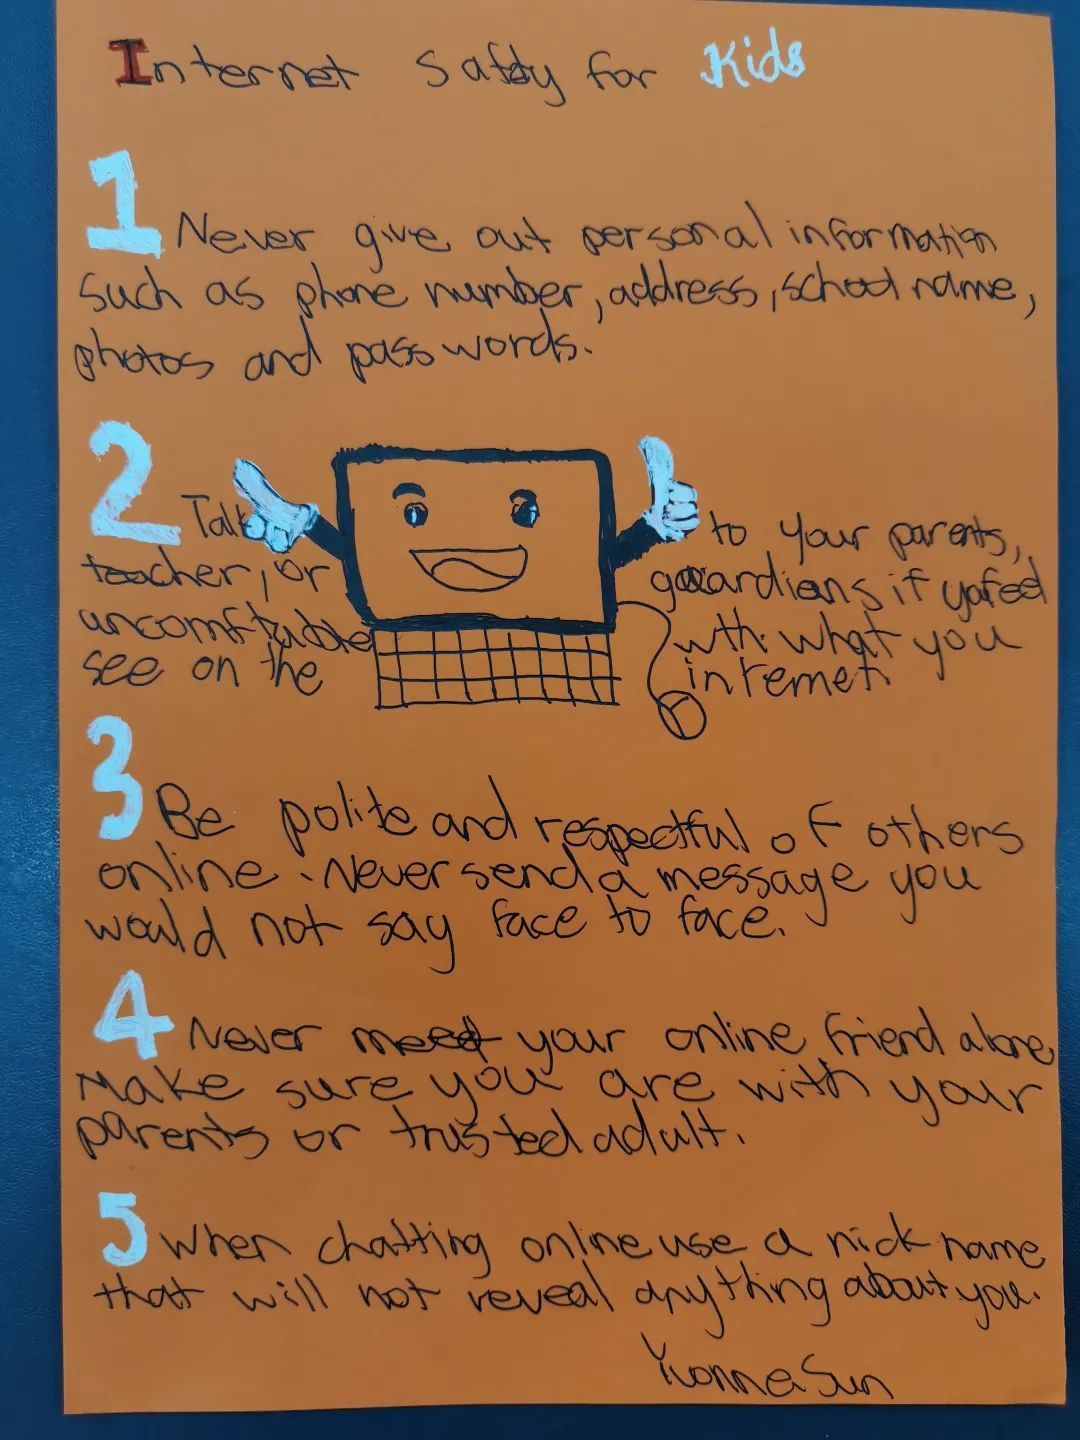 Internet Safty for Kids
1 Never give out personal information
such as phone number, address, school name,
photos and pass words.
2 Talk to your parents,
teacher, or guardians if feel
uncomftuble with what you
see on the internet.
3 Be polite and respectful of others
online. Never send a message you
would not say face to face.
4 Never meet your online friend alone
Make sure you are with your
parents or trusted adult.
5 When chatting online use a nick name
that will not reveal anything about you.
Yvonne Sun